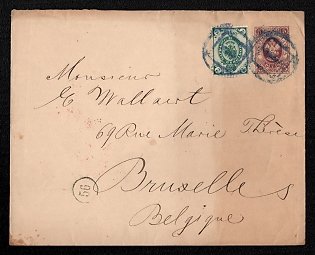 Monsieur
E Wallaert
69 Rue Marie Thérèse
Bruxelles
56
Belgique